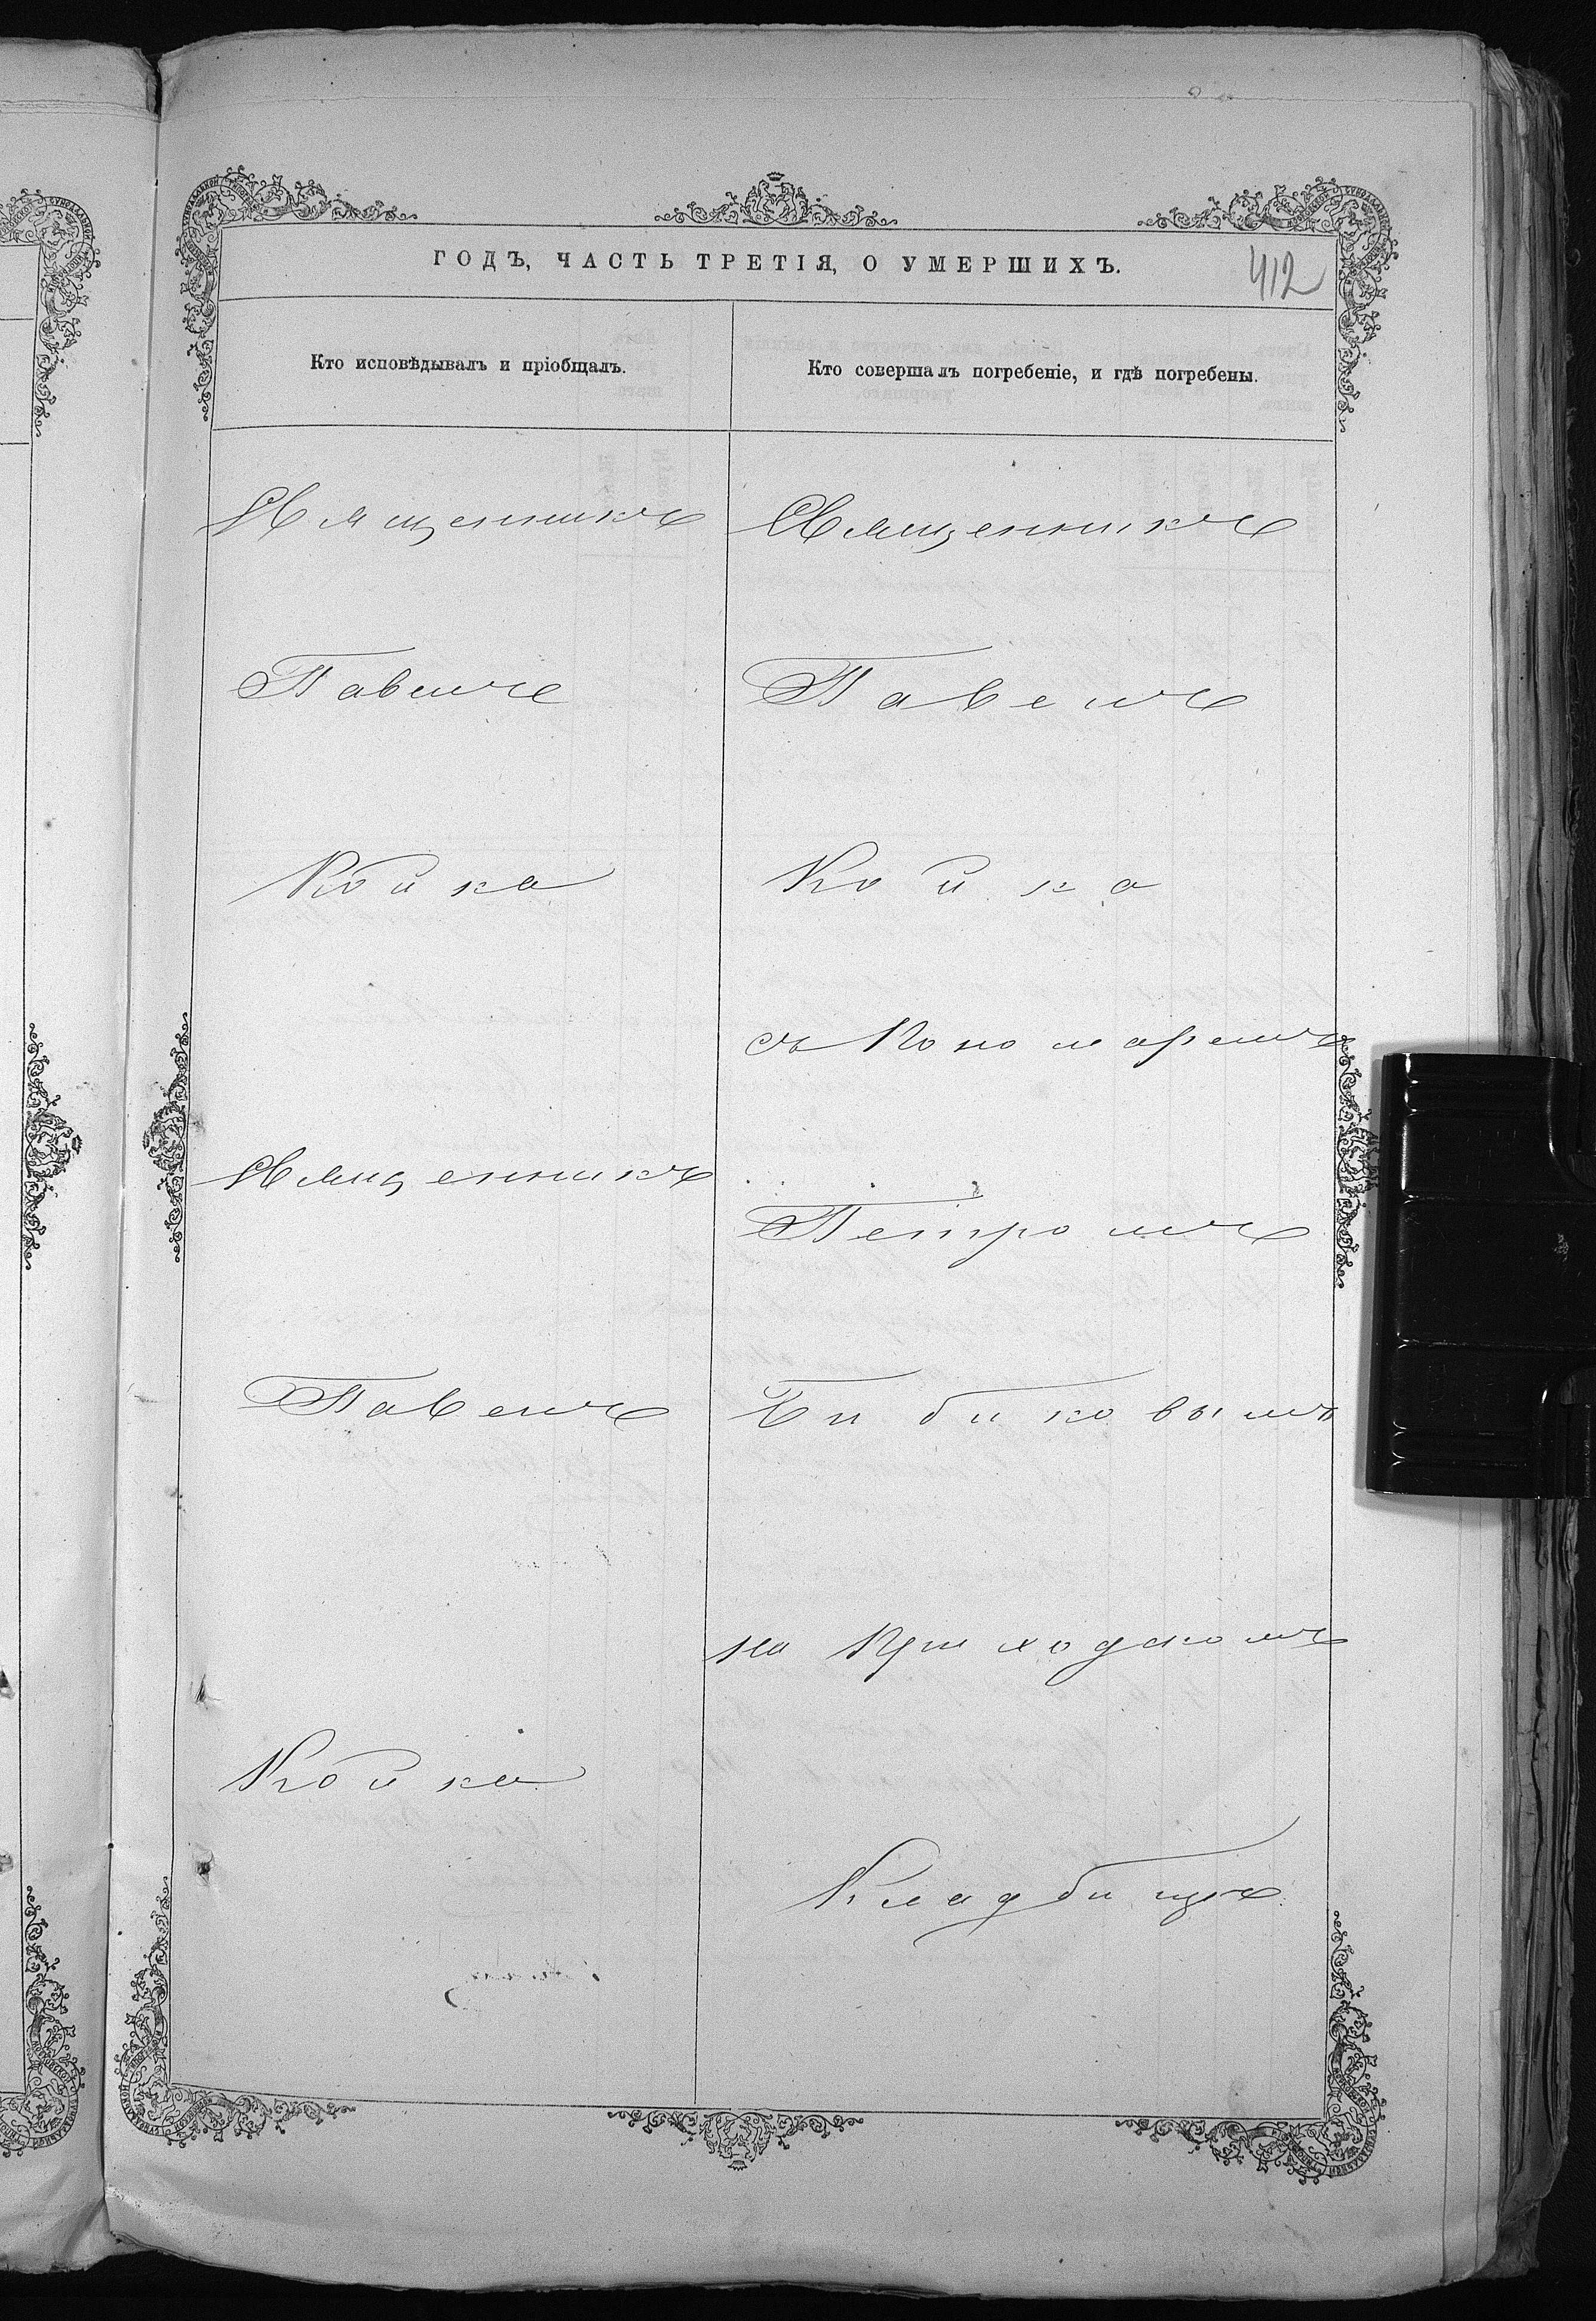 ГОДЪ, ЧАСТЬ ТРЕТІЯ, О УМЕРШИХЪ.
412
Кто исповѣдывалъ и пріобщалъ.
Священникъ
Павелъ
Койка
Священникъ
Павелъ
Койка
Кто совершалъ погребеніе, и гдѣ погребены.
Священникъ
Павелъ
Койка
съ Пономаремъ
Петромъ
Бибиковымъ
на Приходскомъ
Кладбищѣ